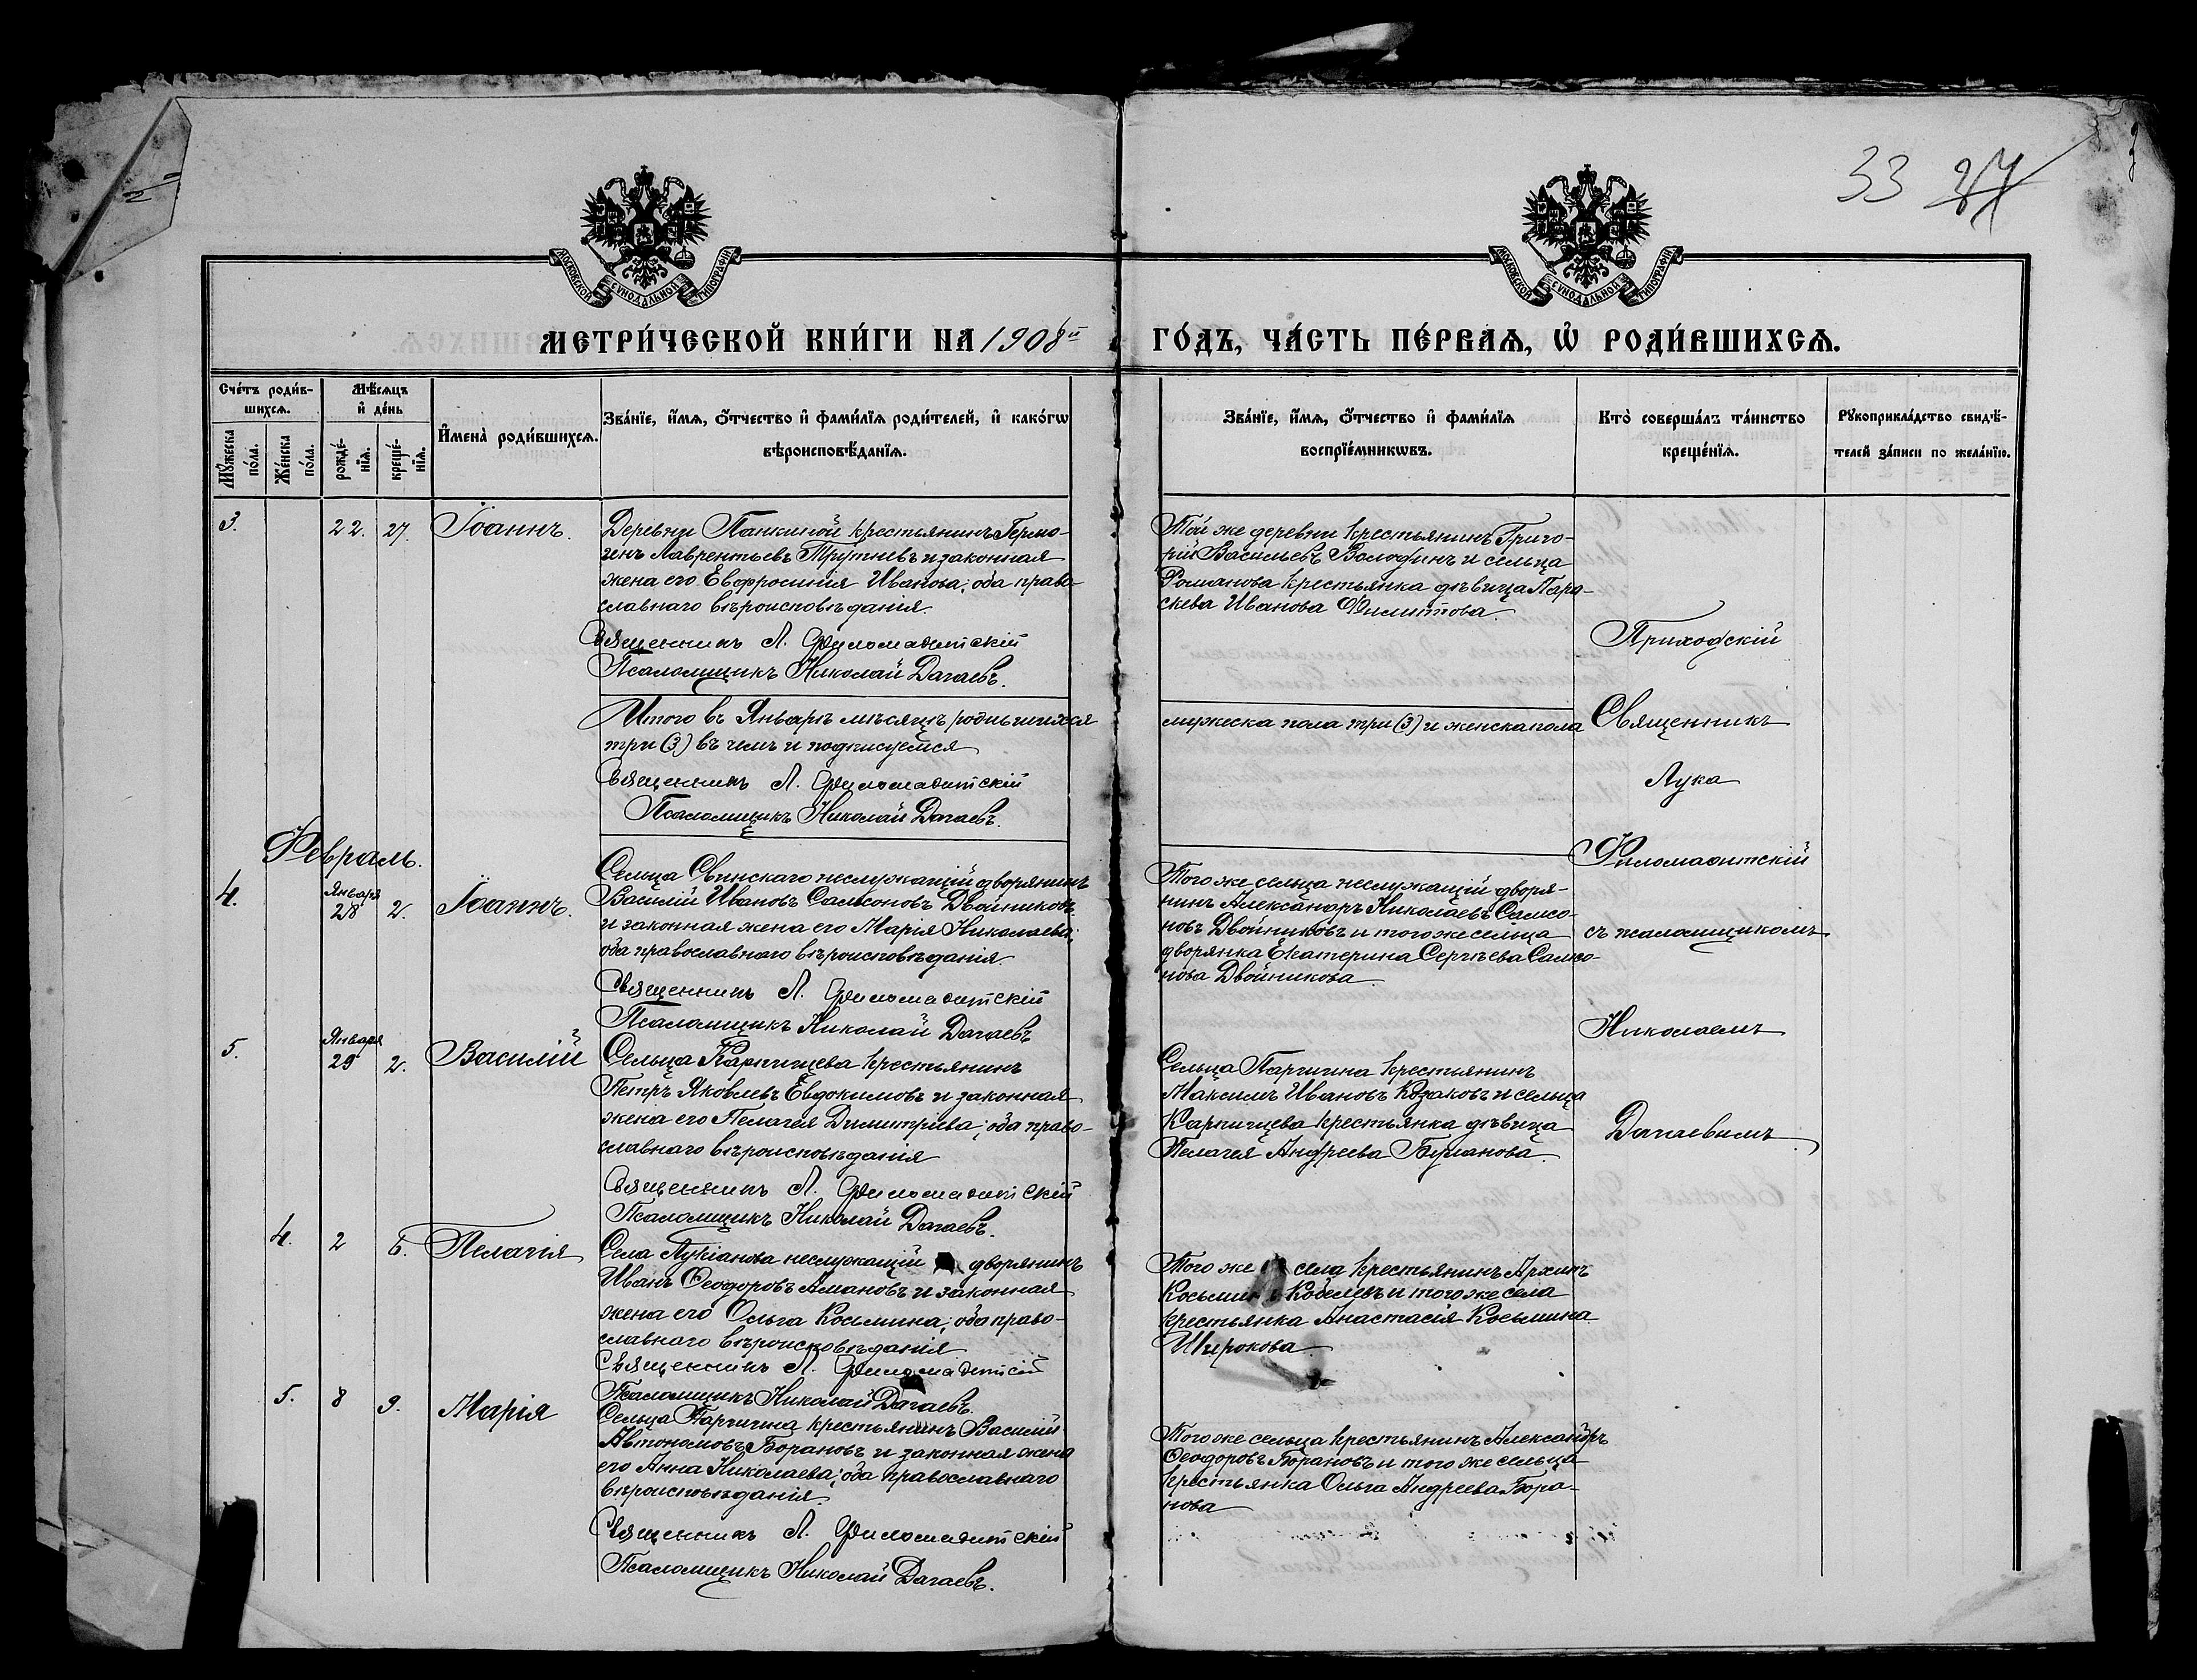 33 27
МОСКОВСКОЙ СѴНОДАЛЬНОЙ ТИПОГРАФІИ
МОСКОВСКОЙ СѴНОДАЛЬНОЙ ТИПОГРАФІИ
МЕТРИ́ЧЕСКОЙ КНИ́ГИ НА 1908й ГО́ДЪ, ЧА́СТЬ ПЕ́РВАѦ, Ѡ҆ РОДИ́ВШИХСѦ.
Сче́тъ роди́в-
шихсѧ.
Мꙋ́жеска по́ла.
Же́нска по́ла.
Мѣ́сѧцъ
и҆ де́нь
рожде́-
нїѧ.
креще́-
нїѧ.
И҆мена̀ роди́вшихсѧ.
Зва́нїе, и҆́мѧ, ѻ҆́тчество и҆ фами́лїѧ роди́телей, и҆ како́гѡ
вѣроисповѣ́данїѧ.
Зва́нїе, и҆́мѧ, ѻ҆́тчество и҆ фами́лїѧ
воспрїе́мникѡвъ.
Кто̀ соверша́лъ та́инство
креще́нїѧ.
Рꙋкоприкла́дство свидѣ́-
телей за́писи по жела́нїю.
3. 22. 27. Іоаннъ.
Деревни Панкиной крестьянинъ Гермо-
генъ Лаврентьевъ Прутневъ и законная
жена его Евфросинія Иванова; оба право-
славнаго вѣроисповѣданія.
Священникъ Л. Филомафитскій
Псаломщикъ Николай Дагаевъ.
Той же деревни крестьянинъ Григо-
рій Васильевъ Володинъ и сельца
Романова крестьянка дѣвица Пара-
скева Иванова Филиппова.
Итого въ Январѣ мѣсяцѣ родившихся
три (3) въ чемъ и подписуемся
мужеска пола три (3) и женска пола
Священникъ Л. Филомафитскій
Псаломщикъ Николай Дагаевъ.
Февраль.
4. Января 28 2. Іоаннъ.
Сельца Свинскаго неслужащій дворянинъ
Василій Ивановъ Самсоновъ Двойниковъ
и законная жена его Марія Николаева;
оба православнаго вѣроисповѣданія.
Священникъ Л. Филомафитскій
Псаломщикъ Николай Дагаевъ
Того же сельца неслужащій дворя-
нинъ Александръ Николаевъ Самсо-
новъ Двойниковъ и того же сельца
дворянка Екатерина Сергѣева Самсо-
нова Двойникова.
5. Января 29 2. Василій
Сельца Карпищева крестьянинъ
Петръ Яковлевъ Евдокимовъ и законная
жена его Пелагея Димитріева; оба право-
славнаго вѣроисповѣданія
Священникъ Л. Филомафитскій
Псаломщикъ Николай Дагаевъ.
Сельца Паргигина крестьянинъ
Максимъ Ивановъ Козаковъ и сельца
Карпищева крестьянка дѣвица
Пелагея Андреева Буланова.
4. 2 6. Пелагія
Села Лукіанова неслужащій дворянинъ
Иванъ Ѳеодоровъ Амановъ и законная
жена его Ольга Косьмина; оба право-
славнаго вѣроисповѣданія
Священникъ Л. Филомафитскій
Псаломщикъ Николай Дагаевъ.
Того же села крестьянинъ Архипъ
Косьминъ Кобелевъ и того же села
крестьянка Анастасія Косьмина
Широкова.
5. 8 9. Марія
Сельца Паргигина крестьянинъ Василій
Автономовъ Борановъ и законная жена
его Анна Николаева; оба православнаго
вѣроисповѣданія.
Священникъ Л. Филомафитскій
Псаломщикъ Николай Дагаевъ.
Того же сельца крестьянинъ Александръ
Ѳеодоровъ Борановъ и того же сельца
крестьянка Ольга Андреева Бора-
нова
Приходскій
Священникъ
Лука
Филомафитскій
съ псаломщикомъ
Николаемъ
Дагаевымъ.